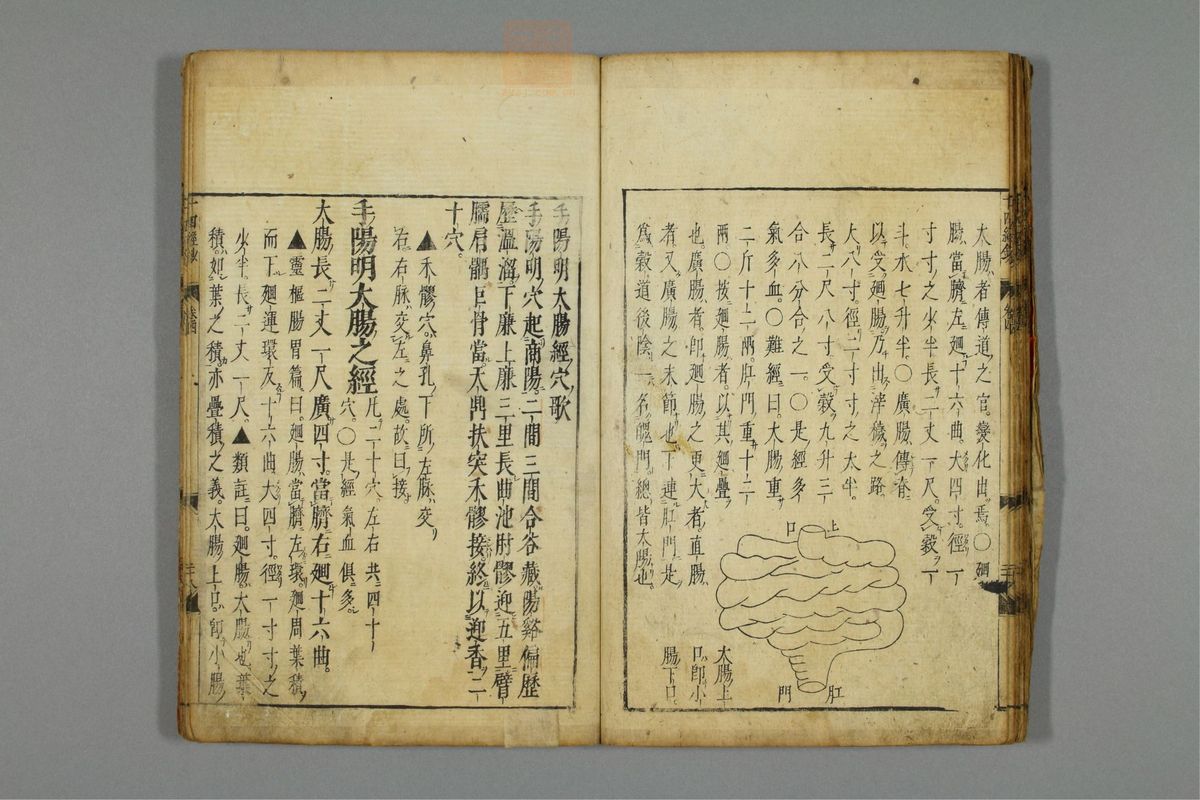 大腸者傳道之官變化出焉○廻
腸當臍左廻十六曲大四寸徑一
寸寸之少半長二丈一尺受穀一
斗水七升半○廣腸傳脊
以受廻腸乃出滓穢之路
大八寸徑二寸寸之大半
長二尺八寸受穀九升三
合八分合之一○是經多
氣多血○難經曰大腸重
二斤十二兩肛門重十二
兩○按廻腸者以其廻疊
也廣腸者即廻腸之更大者直腸
者又廣腸之末節也下連肛門是
爲穀道後陰一名魄門總皆大腸也
上口
肛門
大腸上
口即小
腸下口
手陽明大腸經穴歌
手陽明穴起商陽二間三間合谷藏陽谿偏歷
歷溫溜下廉上廉三里長曲池肘髎迎五里臂
臑肩髃巨骨當天鼎扶突禾髎接終以迎香二
十穴
▲禾髎穴鼻孔下所左脉交
右右脉交左之處故曰接
手陽明大腸之經
凡二十穴左右共四十
穴○是經氣血俱多
大腸長二丈一尺廣四寸當臍右廻十六曲
▲靈樞腸胃篇曰廻腸當臍左環廻周葉積
而下廻運環反十六曲大四寸徑一寸寸之
少半長二丈一尺▲類註曰廻腸大腸也葉
積如葉之積亦疊積之義大腸上口即小腸